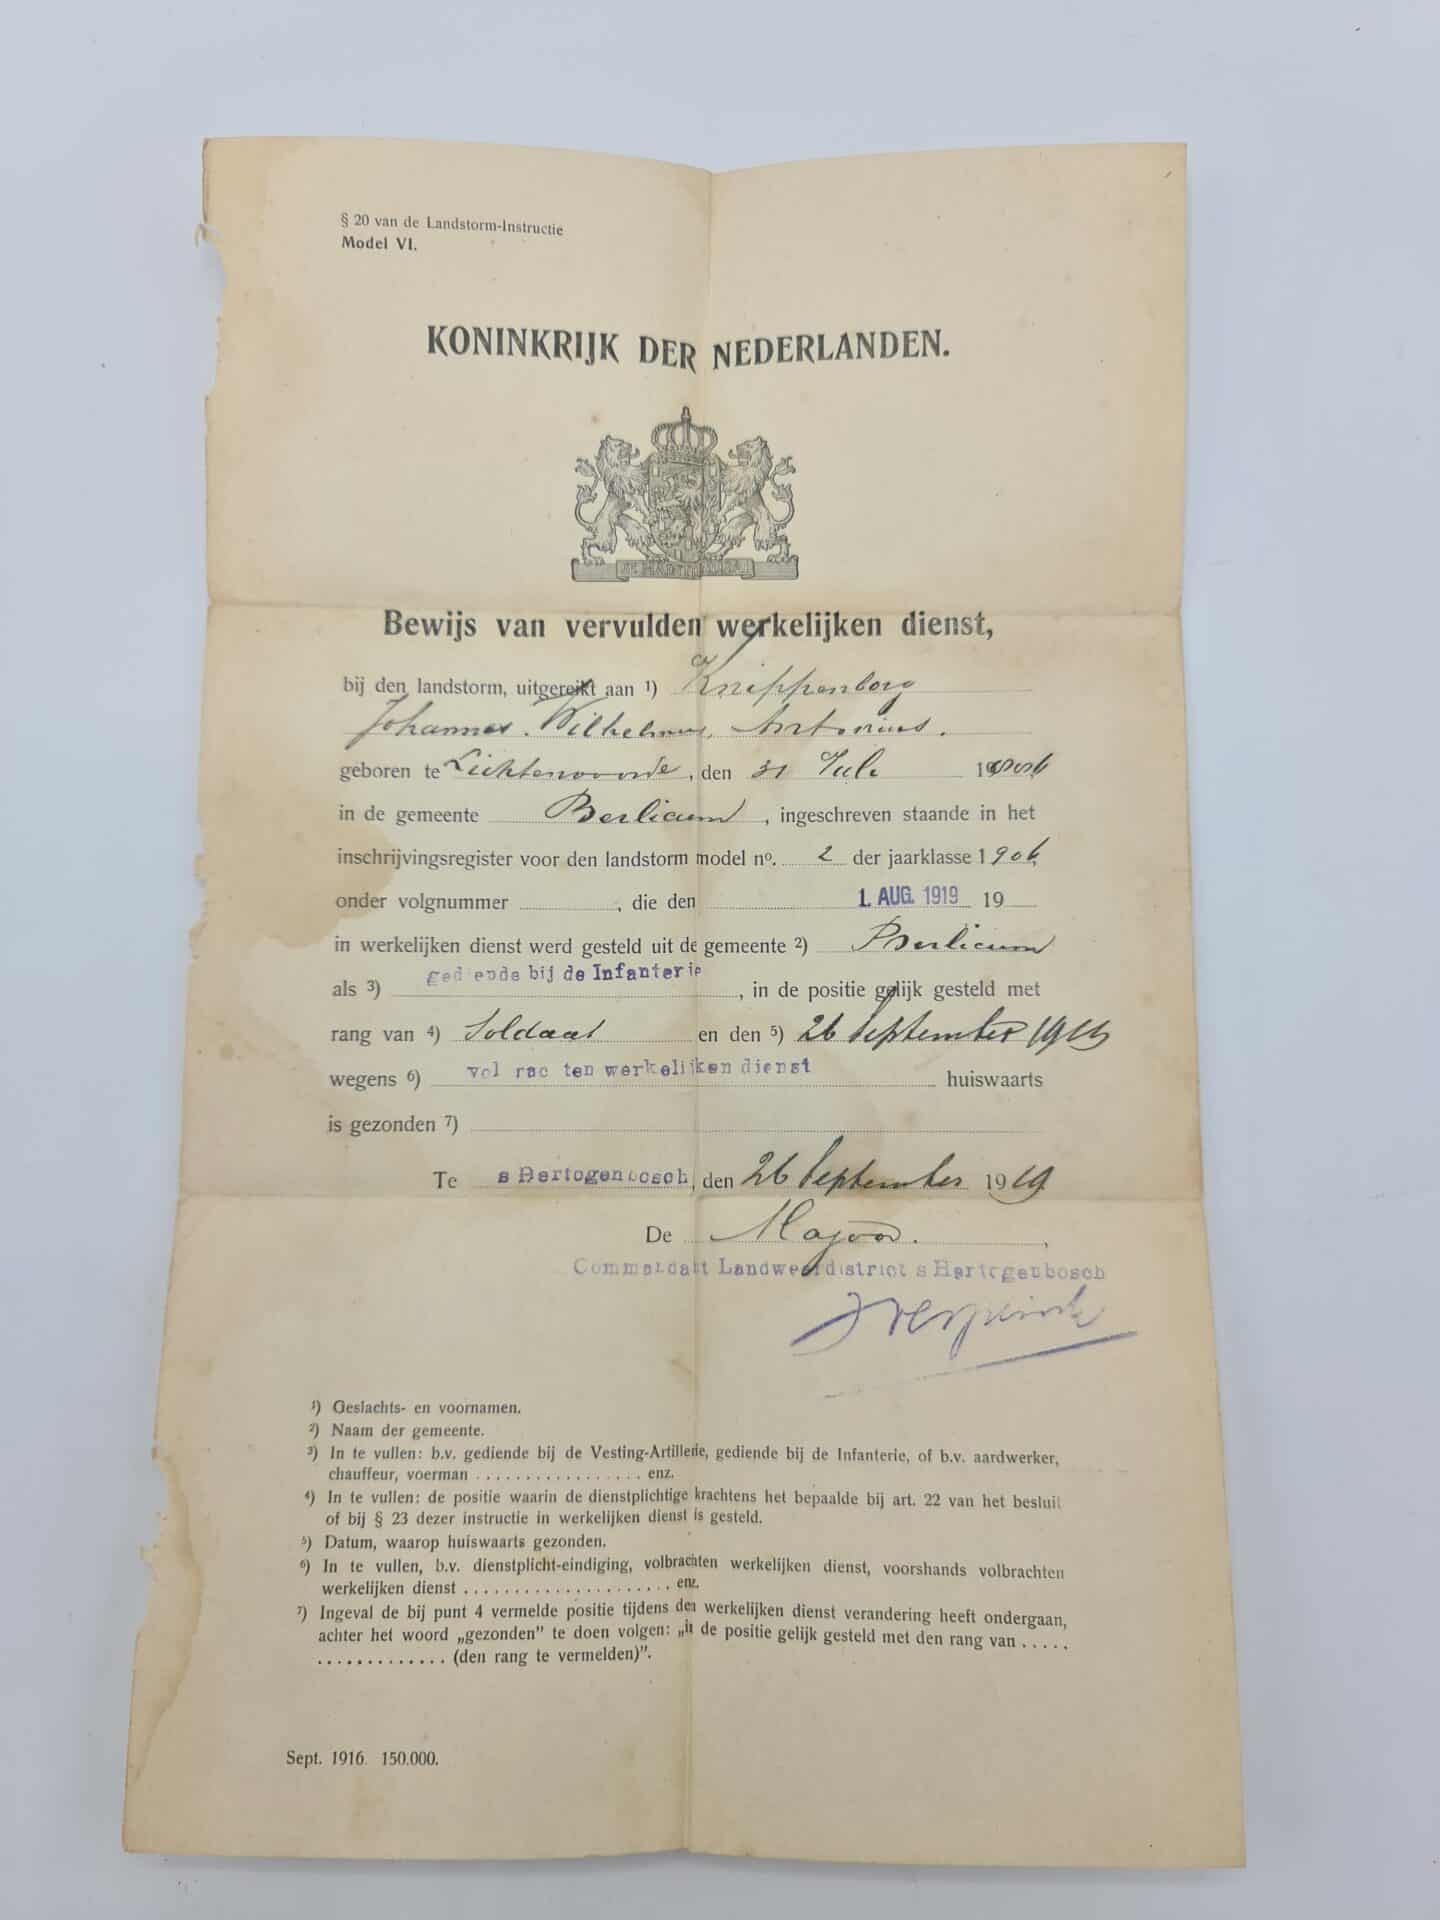 § 20 van de Landstorm-Instructie
Model VI.
KONINKRIJK DER NEDERLANDEN.
JE MAINTIENDRAI
Bewijs van vervulden werkelijken dienst,
bij den landstorm, uitgereikt aan 1) Knippenborg
Johannes. Wilhelmus, Antonius.
geboren te Lichtenvoorde, den 31 Juli
in de gemeente Berlicum, ingeschreven staande in het
inschrijvingsregister voor den landstorm model no. 2 der jaarklasse 1906,
onder volgnummer , die den 1. AUG. 1919 19
in werkelijken dienst werd gesteld uit de gemeente 2) Berlicum
als 3) gediende bij de Infanterie, in de positie gelijk gesteld met
rang van 4) Soldaat en den 5) 26 September 1919
wegens 6) vol rac ten werkelijken dienst huiswaarts
is gezonden 7)
Te s Hertogenbosch, den 26 September 1919
De Majoor.
Commandant Landweerdistrict s Hertogenbosch
1) Geslachts- en voornamen.
2) Naam der gemeente.
3) In te vullen: b.v. gediende bij de Vesting-Artillerie, gediende bij de Infanterie, of b.v. aardwerker,
chauffeur, voerman ................. enz.
4) In te vullen: de positie waarin de dienstplichtige krachtens het bepaalde bij art. 22 van het besluit
of bij § 23 dezer instructie in werkelijken dienst is gesteld.
5) Datum, waarop huiswaarts gezonden.
6) In te vullen, b.v. dienstplicht-eindiging, volbrachten werkelijken dienst, voorshands volbrachten
werkelijken dienst ..................... enz.
7) Ingeval de bij punt 4 vermelde positie tijdens den werkelijken dienst verandering heeft ondergaan,
achter het woord „gezonden” te doen volgen: „in de positie gelijk gesteld met den rang van .....
............. (den rang te vermelden)”.
Sept. 1916 150.000.